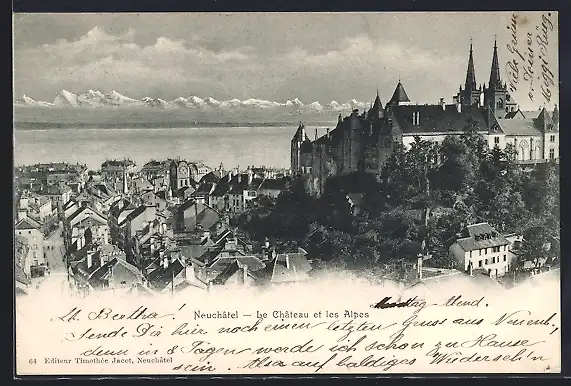 Neuchâtel - Le Château et les Alpes
Montag - Abend.
L. Bertha!
sende Dir hier noch einen letzten Gruss aus Neuenb.,
denn in 8 Tagen werde ich schon zu Hause
sein. Also auf baldiges Wiederseh'n
64 Editeur Timothée Jacot, Neuchâtel